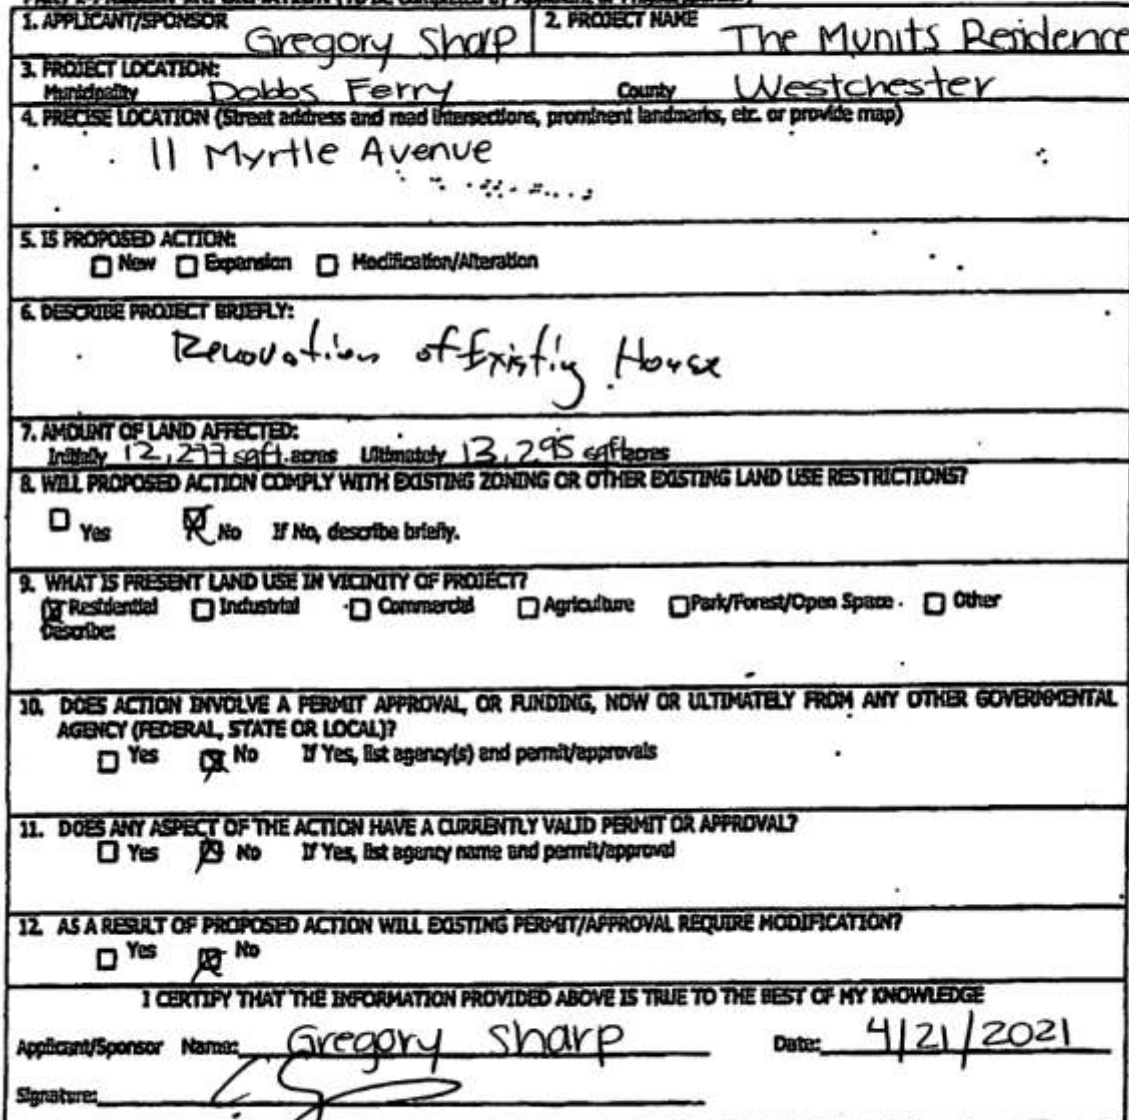 1. APPLICANT/SPONSOR Gregory Sharp 2. PROJECT NAME The Munits Residence
3. PROJECT LOCATION:
Municipality Dobbs Ferry County Westchester
4. PRECISE LOCATION (Street address and road intersections, prominent landmarks, etc. or provide map)
11 Myrtle Avenue
5. IS PROPOSED ACTION:
☐ New ☐ Expansion ☐ Modification/Alteration
6. DESCRIBE PROJECT BRIEFLY:
Renovation of Existig House
7. AMOUNT OF LAND AFFECTED:
Initially 12,277 sqft. acres Ultimately 13,295 sqft acres
8. WILL PROPOSED ACTION COMPLY WITH EXISTING ZONING OR OTHER EXISTING LAND USE RESTRICTIONS?
☐ Yes ☒ No If No, describe briefly.
9. WHAT IS PRESENT LAND USE IN VICINITY OF PROJECT?
☒ Residential ☐ Industrial ☐ Commercial ☐ Agriculture ☐ Park/Forest/Open Space ☐ Other
Describe:
10. DOES ACTION INVOLVE A PERMIT APPROVAL, OR FUNDING, NOW OR ULTIMATELY FROM ANY OTHER GOVERNMENTAL
AGENCY (FEDERAL, STATE OR LOCAL)?
☐ Yes ☒ No If Yes, list agency(s) and permit/approvals
11. DOES ANY ASPECT OF THE ACTION HAVE A CURRENTLY VALID PERMIT OR APPROVAL?
☐ Yes ☒ No If Yes, list agency name and permit/approval
12. AS A RESULT OF PROPOSED ACTION WILL EXISTING PERMIT/APPROVAL REQUIRE MODIFICATION?
☐ Yes ☒ No
I CERTIFY THAT THE INFORMATION PROVIDED ABOVE IS TRUE TO THE BEST OF MY KNOWLEDGE
Applicant/Sponsor Name: Gregory Sharp Date: 4/21/2021
Signature: